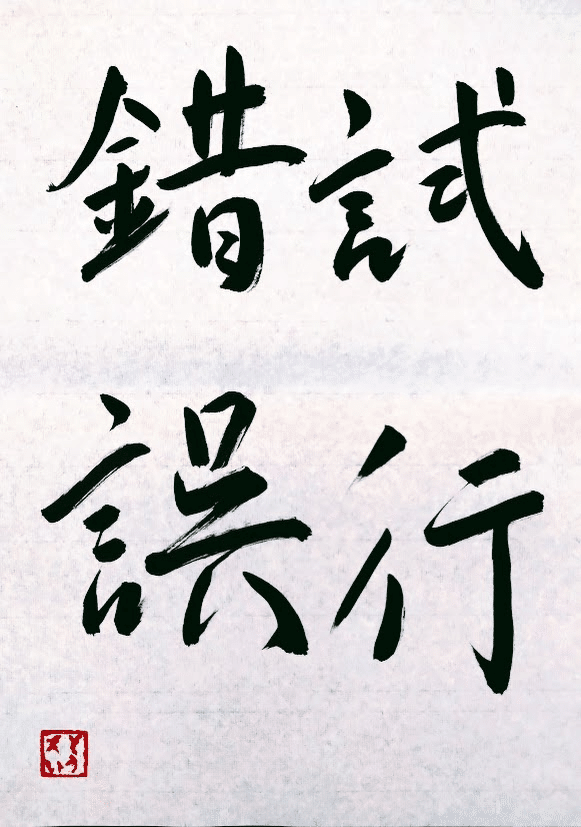 試行
錯誤